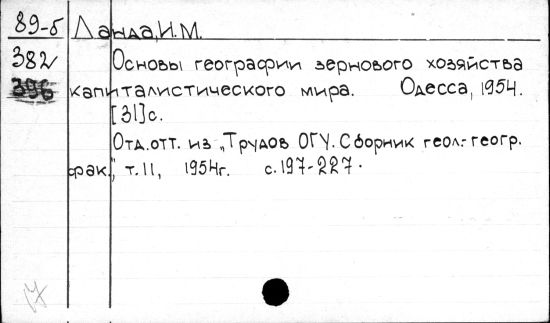 89-б Ланда, И.М.
382 Основы географии зернового хозяйства
396 капиталистического мира. Одесса, 1954.
[31]с.
Отд.отт. из „Трудов ОГУ. Сборник геол.-геогр.
фак.", т.11, 1954г. с.197-227.